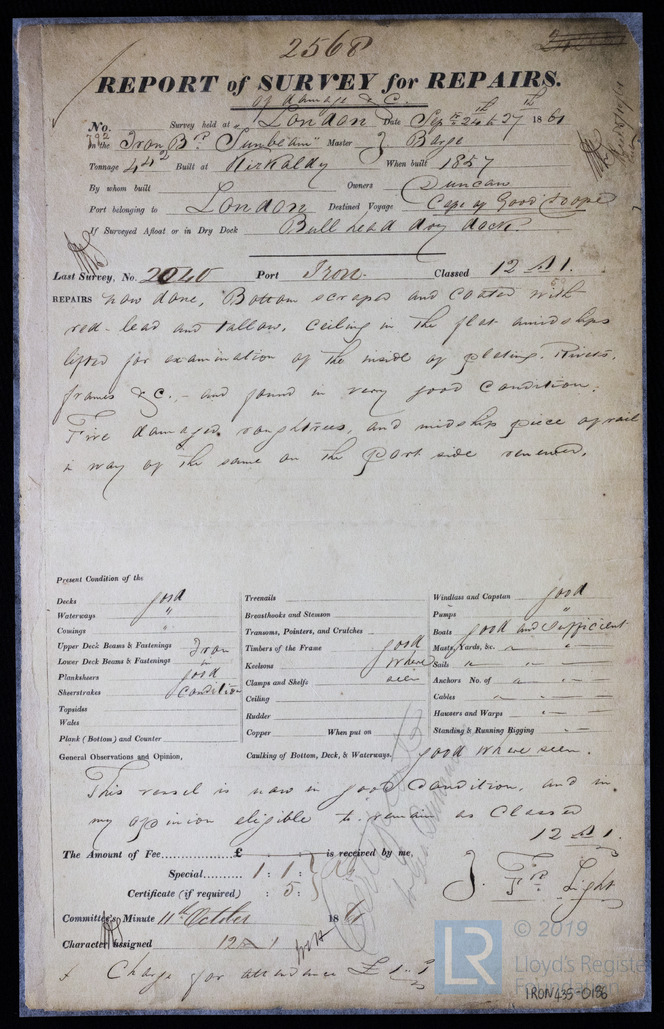 2568
REPORT of SURVEY for REPAIRS.
of damage &c.
No. 792 Survey held at London Date Sepr 24th & 27th 1861
on the Iron Bk "Sunbeam" Master J Barge
Tonnage 442 Built at Kirkaldy When built 1857
By whom built Owners Duncan
Port belonging to London Destined Voyage Cape of Good Hope
If Surveyed Afloat or in Dry Dock Bull head dry dock
Last Survey, No. 2040 Port Iron. Classed 12 A 1.
REPAIRS now done, Bottom scraped and coated with
red-lead and tallow. Ceiling in the flat amidships
lifted for examination of the inside of plating. Rivets,
frames &c., - and found in very good condition.
Five damaged roughtrees, and midship piece of rail
in way of the same on the port side renewed.
Present Condition of the
Decks good
Waterways "
Comings "
Upper Deck Beams & Fastenings Iron
Lower Deck Beams & Fastenings in
Planksheers good
Sheerstrakes Condition
Topsides
Wales
Plank (Bottom) and Counter
Treenails
Breasthooks and Stemson
Transoms, Pointers, and Crutches
Timbers of the Frame good
Keelsons where
Clamps and Shelfs seen
Ceiling
Rudder
Copper When put on
Caulking of Bottom, Deck, & Waterways. good where seen.
Windlass and Capstan good
Pumps "
Boats good and sufficient
Masts, Yards, &c. " " "
Sails " " "
Anchors No. of " " "
Cables " " "
Hawsers and Warps " "
Standing & Running Rigging " "
General Observations and Opinion,
This vessel is now in good condition, and in
my opinion eligible to remain as Classed
12 A 1.
The Amount of Fee £ : : is received by me,
Special 1 : 1 :
Certificate (if required) : 5 :
Light
Committee's Minute 11th October 1861
Character assigned 12 A 1
x Charge for attendance £ 1.. 1
© 2019
LR
Lloyd's Register
Foundation
IRON435-0156